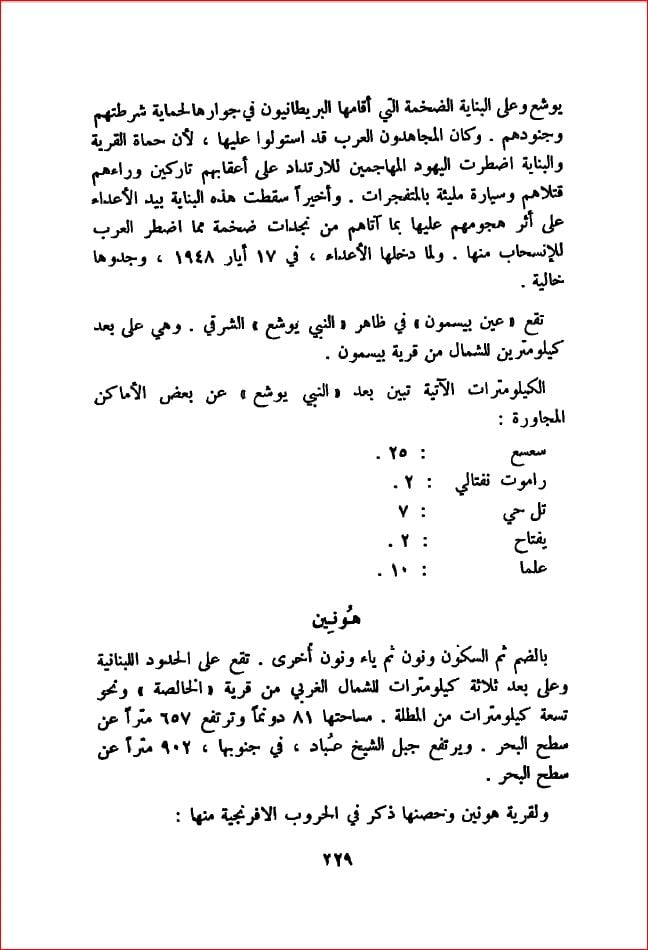 يوشع وعلى البناية الضخمة التي أقامها البريطانيون في جوارها لحماية شرطتهم
وجنودهم . وكان المجاهدون العرب قد استولوا عليها ، لأن حماة القرية
والبناية اضطرت اليهود المهاجمين للارتداد على أعقابهم تاركين وراءهم
قتلاهم وسيارة مليئة بالمتفجرات . وأخيراً سقطت هذه البناية بيد الأعداء
على أثر هجومهم عليها بما آتاهم من نجدات ضخمة مما اضطر العرب
للإنسحاب منها . ولما دخلها الأعداء ، في ١٧ أيار ١٩٤٨ ، وجدوها
خالية .
تقع « عين بيسمون » في ظاهر « النبي يوشع » الشرقي . وهي على بعد
كيلومترين للشمال من قرية بيسمون .
الكيلومترات الآتية تبين بعد « النبي يوشع » عن بعض الأماكن
المجاورة :
سعسع : ٢٥ .
راموت نفتالي : ٢ .
تل حي : ٧
يفتاح : ٢ .
علما : ١٠ .
هُونين
بالضم ثم السكون ونون ثم ياء ونون أُخرى . تقع على الحدود اللبنانية
وعلى بعد ثلاثة كيلومترات للشمال الغربي من قرية « الخالصة » ونحو
تسعة كيلومترات من المطلة . مساحتها ٨١ دونماً وترتفع ٦٥٧ متراً عن
سطح البحر . ويرتفع جبل الشيخ عبّاد ، في جنوبها ، ٩٠٢ متراً عن
سطح البحر .
ولقرية هونين وحصنها ذكر في الحروب الافرنجية منها :
٢٢٩